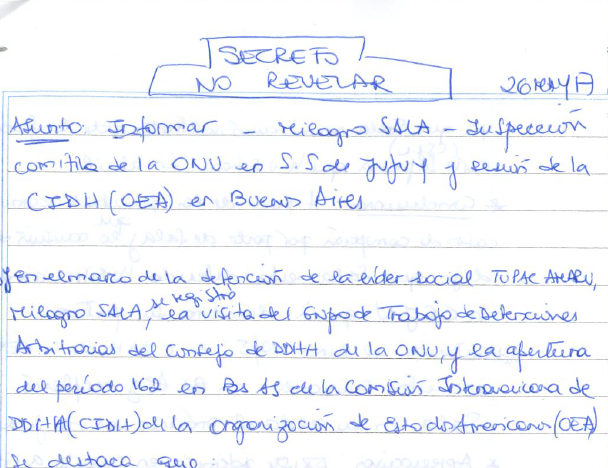 SECRETO
NO REVELAR
26MAY17
Asunto: Informar - Milagro SALA - Inspección
comitiva de la ONU en S.S de JUJUY y sesión de la
CIDH (OEA) en Buenos Aires
y en el marco de la detención de la líder social TUPAC AMARU,
se registró
Milagro SALA, la visita del Grupo de Trabajo de Detenciones
Arbitrarias del Consejo de DDHH de la ONU, y la apertura
del período 162 en Bs As de la Comisión Interamericana de
DDHH (CIDH) de la Organización de Estados Americanos (OEA)
se destaca que: